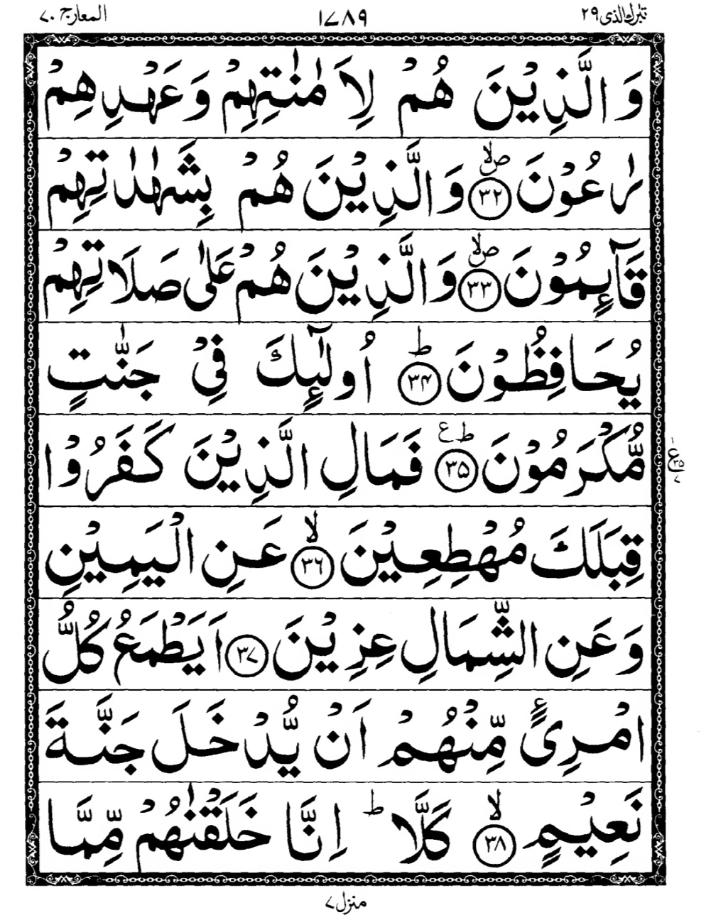 تبٰرك الذی ۲۹ ۱۷۸۹ المعارج ۷۰
وَالَّذِيْنَ هُمْ لِاَمٰنٰتِهِمْ وَعَهْدِهِمْ
رٰعُوْنَ ۙ﴿۳۲﴾ وَالَّذِيْنَ هُمْ بِشَهٰدٰتِهِمْ
قَآئِمُوْنَ ۙ﴿۳۳﴾ وَالَّذِيْنَ هُمْ عَلٰى صَلَاتِهِمْ
يُحَافِظُوْنَ ؕ﴿۳۴﴾ اُولٰٓئِكَ فِيْ جَنّٰتٍ
مُّكْرَمُوْنَ ؕ ع ﴿۳۵﴾ فَمَالِ الَّذِيْنَ كَفَرُوْا
قِبَلَكَ مُهْطِعِيْنَ ۙ﴿۳۶﴾ عَنِ الْيَمِيْنِ
وَعَنِ الشِّمَالِ عِزِيْنَ ﴿۳۷﴾ اَيَطْمَعُ كُلُّ
امْرِئٍ مِّنْهُمْ اَنْ يُّدْخَلَ جَنَّةَ
نَعِيْمٍ ۙ﴿۳۸﴾ كَلَّا ؕ اِنَّا خَلَقْنٰهُمْ مِّمَّا
منزل ۷